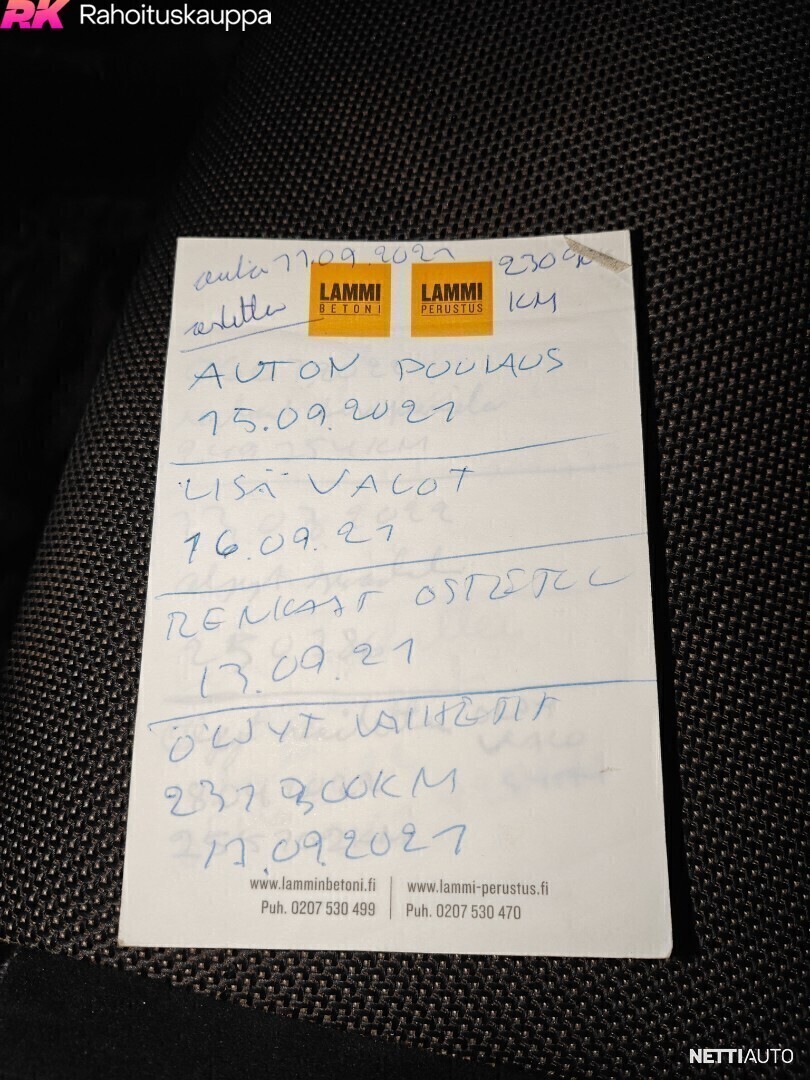 RK Rahoituskauppa
11.09.2021
LAMMI BETONI
LAMMI PERUSTUS
KM
AUTON
15.09.2021
LISÄ VALOT
16.09.21
RENKAAT OSTETTU
13.09.21
ÖLJYT VAIHETTU
231 900KM
17.09.2021
www.lamminbetoni.fi
Puh. 0207 530 499
www.lammi-perustus.fi
Puh. 0207 530 470
NETTIAUTO